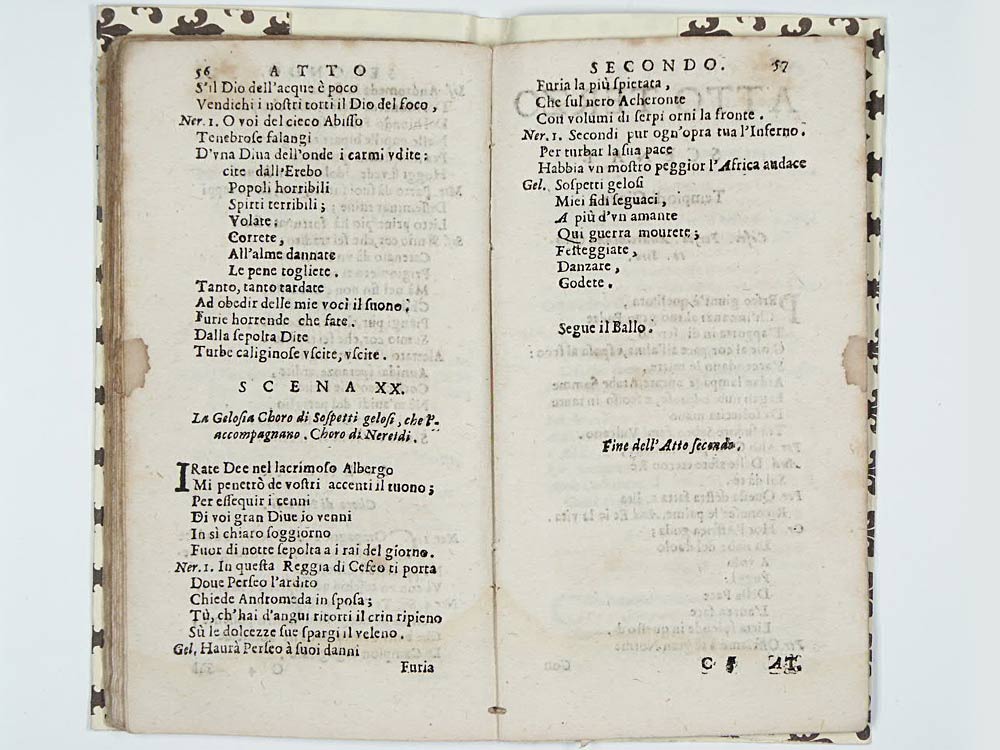 56 ATTO
S'il Dio dell'acque è poco
Vendichi i nostri torti il Dio del foco,
Ner. 1. O voi del cieco Abisso
Tenebrose falangi
D'vna Diua dell'onde i carmi vdite:
cite dall'Erebo
Popoli horribili
Spirti terribili;
Volate,
Correte,
All'alme dannate
Le pene togliete.
Tanto, tanto tardate
Ad obedir delle mie voci il suono.
Furie horrende che fate.
Dalla sepolta Dite
Turbe caliginose vscite, vscite.
SCENA XX.
La Gelosia Choro di Sospetti gelosi, che l'
accompagnano. Choro di Nereidi.
IRate Dee nel lacrimoso Albergo
Mi penetrò de vostri accenti il tuono;
Per essequir i cenni
Di voi gran Diue io venni
In sì chiaro soggiorno
Fuor di notte sepolta a i rai del giorno.
Ner. 1. In questa Reggia di Cefeo ti porta
Doue Perseo l'ardito
Chiede Andromeda in sposa;
Tù, ch'hai d'angui ritorti il crin ripieno
Sù le dolcezze sue spargi il veleno.
Gel. Haurà Perseo à suoi danni
Furia
SECONDO. 57
Furia la più spietata,
Che sul nero Acheronte
Con volumi di serpi orni la fronte.
Ner. 1. Secondi pur ogn'opra tua l'Inferno.
Per turbar la sua pace
Habbia vn mostro peggior l'Africa audace
Gel. Sospetti gelosi
Miei fidi seguaci,
A più d'vn amante
Qui guerra mouete;
Festeggiate,
Danzare,
Godete.
Segue il Ballo.
Fine dell'Atto secondo.
C 5 AT.